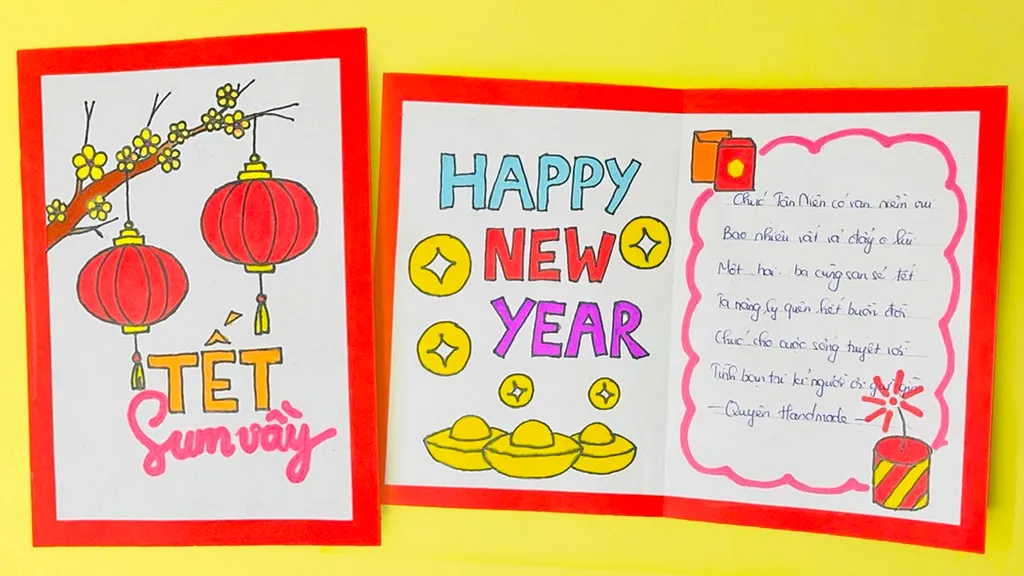 TẾT
Sum vầy
HAPPY
NEW
YEAR
Chúc Tân Niên có vạn niềm vui
Bao nhiêu vất vả đẩy o lùi
Một hai ba cùng san sẻ tết
Ta nâng ly quên hết buồn đời
Chúc cho cuộc sống tuyệt vời
Tình bạn tri kỉ người ơi
- Quyên Handmade -